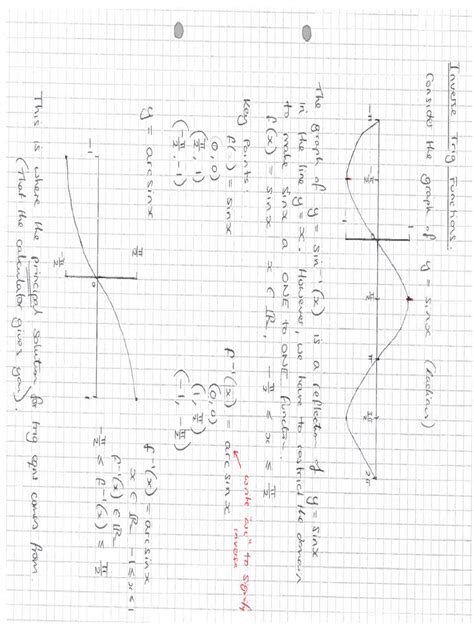 Inverse Trig Functions.
Consider the graph of y = sinx (radians)
-π
-π/2
1
-1
π/2
π
3π/2
2π
The graph of y = sin⁻¹(x) is a reflection of y = sinx
in the line y = x. However, we have to restrict the domain
to make sinx a ONE to ONE function.
f(x) = sinx x ∈ ℝ, -π/2 ≤ x ≤ π/2
Key Points:
f(x) = sinx f⁻¹(x) = arcsinx
write "arc" to signify inverse
(0,0) (0,0)
(π/2, 1) (1, π/2)
(-π/2, -1) (-1, -π/2)
y = arcsinx
f⁻¹(x) = arcsinx
x ∈ ℝ -1 ≤ x ≤ 1
f⁻¹(x) ∈ ℝ
-π/2 ≤ f⁻¹(x) ≤ π/2
π/2
-1
1
-π/2
This is where the principal solution for trig eqns comes from.
(That the calculator gives you).